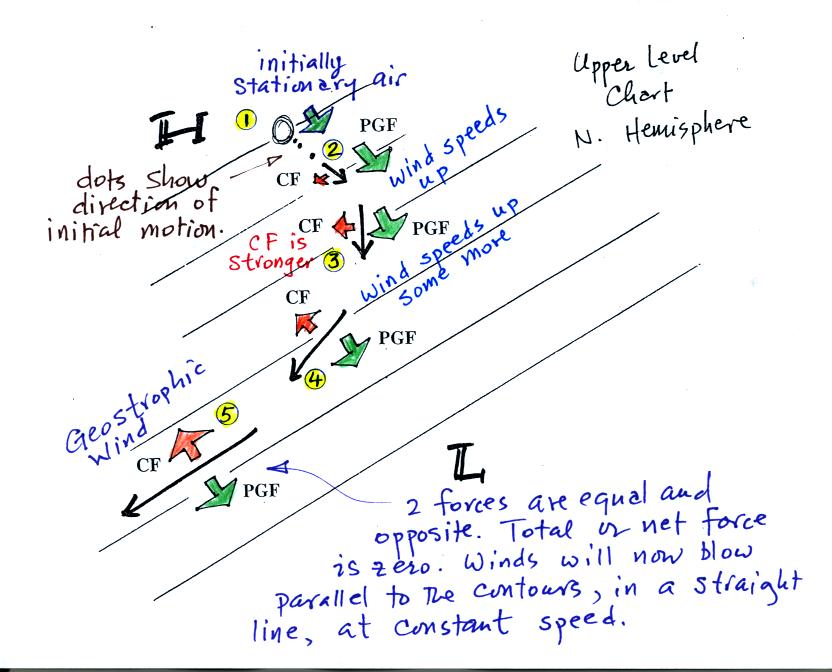 Upper Level
Chart
N. Hemisphere
initially
stationary air
H
1
PGF
2
CF
wind speeds
up
dots show
direction of
initial motion.
CF
PGF
CF is
stronger
3
wind speeds up
some more
CF
PGF
4
Geostrophic
Wind
5
CF
PGF
L
2 forces are equal and
opposite. Total or net force
is zero. Winds will now blow
parallel to the contours, in a straight
line, at constant speed.